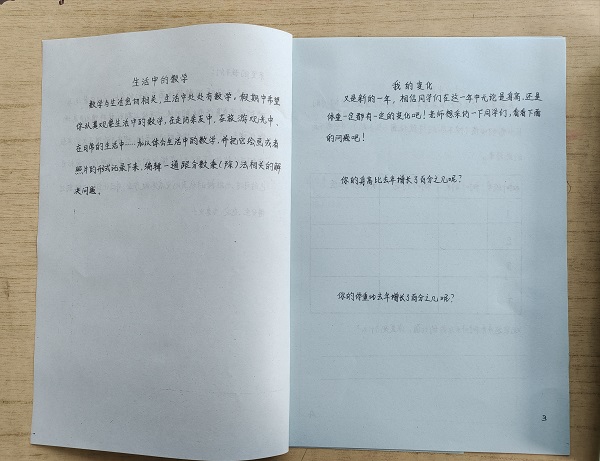 生活中的数学
数学与生活密切相关,生活中处处有数学,假期中希望
你认真观察生活中的数学,在走访亲友中、在旅游观光中、
在日常的生活中……加以体会生活中的数学,并把它绘画或者
照片的形式记录下来,编辑一道跟分数乘(除)法相关的解
决问题。
我的变化
又是新的一年,相信同学们在这一年中无论是身高,还是
体重一定都有一定的变化吧!老师想采访一下同学们,看看下面
的问题吧!
你的身高比去年增长了百分之几呢?
你的体重比去年增长了百分之几呢?
3